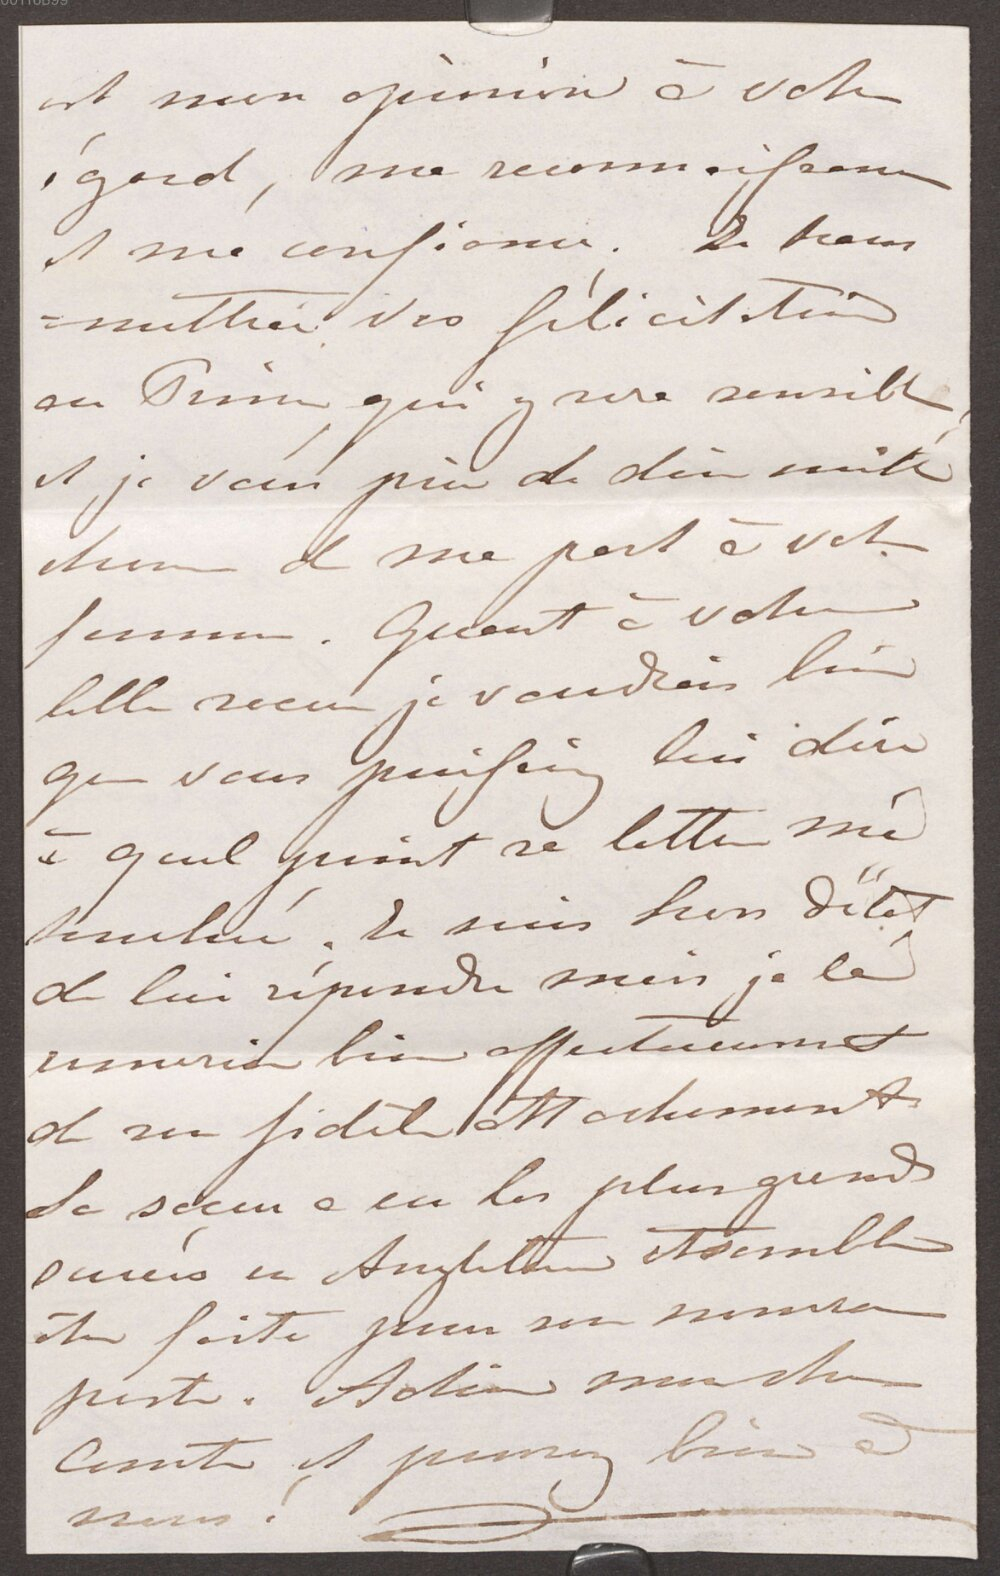 00110B99
est mon opinion à votre
égard, ma reconnaissance
et ma confiance. Je trans
=mettrai vos félicitations
au Prince qui y sera sensible,
et je vous prie de dire mille
choses de ma part à votre
femme. Quant à votre
belle soeur je voudrais bien
que vous puissiez lui dire
à quel point sa lettre m'a
touchée. Je suis hors d'état
de lui répondre mais je la
remercie bien affectueusement
de son fidèle attachement.
Sa soeur a eu les plus grands
succès en Angleterre et semble
être faite pour son nouveau
poste. Adieu mon cher
Comte et pensez bien à
nous!